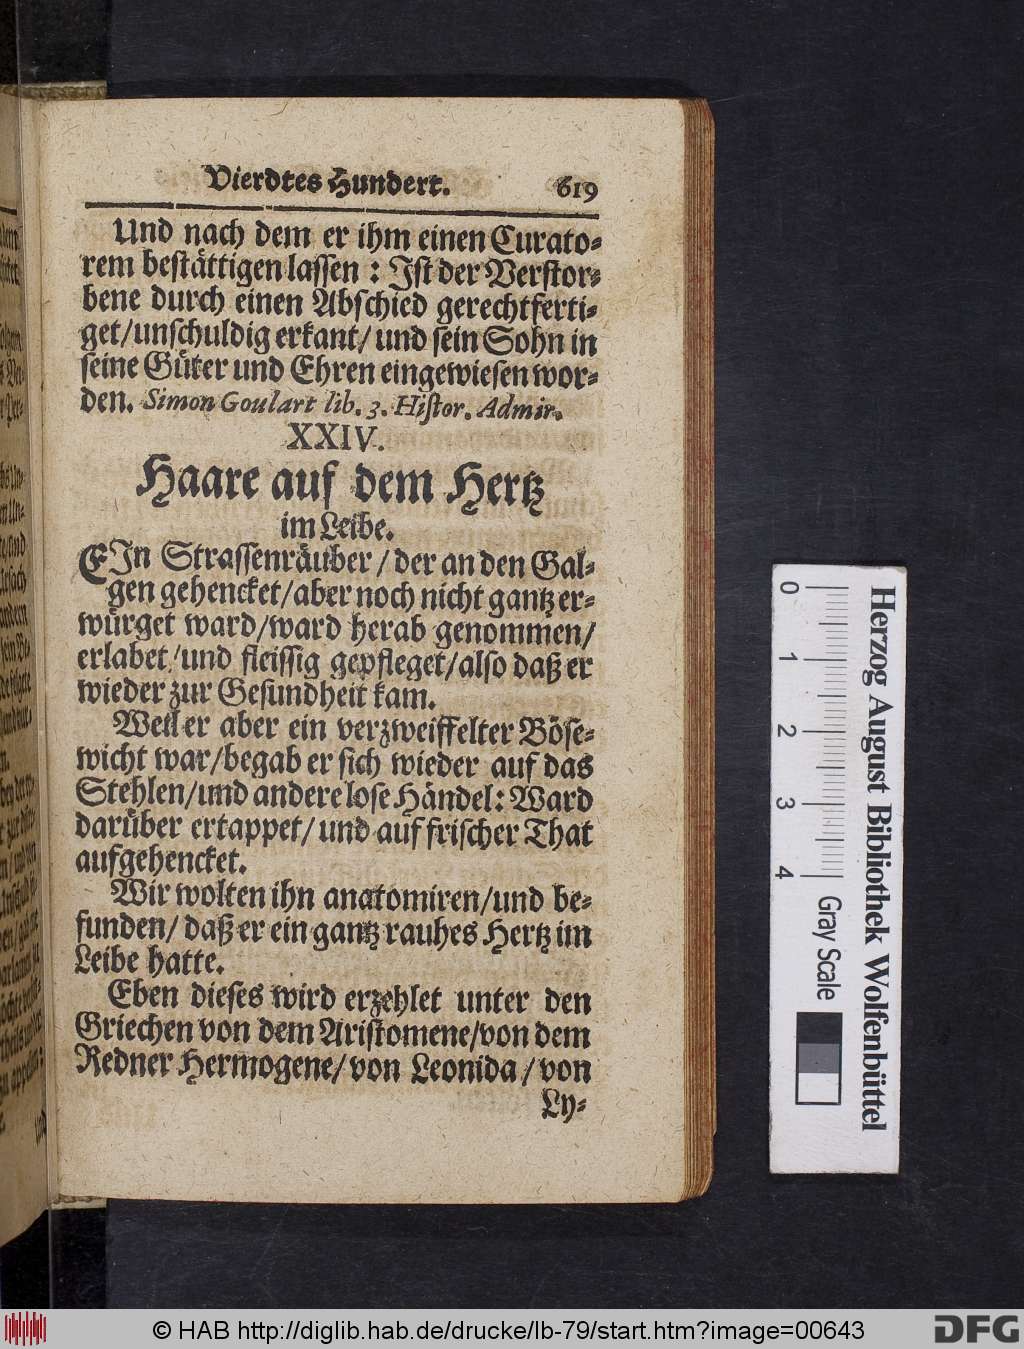 Vierdtes Hundert. 619
Und nach dem er ihm einen Curato-
rem bestättigen lassen : Ist der Verstor-
bene durch einen Abschied gerechtferti-
get/unschuldig erkant/ und sein Sohn in
seine Güter und Ehren eingewiesen wor-
den. Simon Goulart lib. 3. Histor. Admir.
XXIV.
Haare auf dem Hertz
im Leibe.
EIn Strassenräuber / der an den Gal-
gen gehencket/aber noch nicht gantz er-
würget ward/ward herab genommen/
erlabet/und fleissig gepfleget/also daß er
wieder zur Gesundheit kam.
Weil er aber ein verzweiffelter Böse-
wicht war/begab er sich wieder auf das
Stehlen/und andere lose Händel: Ward
darüber ertappet/ und auf frischer That
aufgehencket.
Wir wolten ihn anatomiren/und be-
funden/ daß er ein gantz rauhes Hertz im
Leibe hatte.
Eben dieses wird erzehlet unter den
Griechen von dem Aristomene/von dem
Redner Hermogene/ von Leonida / von
Ly-
0 1 2 3 4 Gray Scale
Herzog August Bibliothek Wolfenbüttel
© HAB http://diglib.hab.de/drucke/lb-79/start.htm?image=00643
DFG